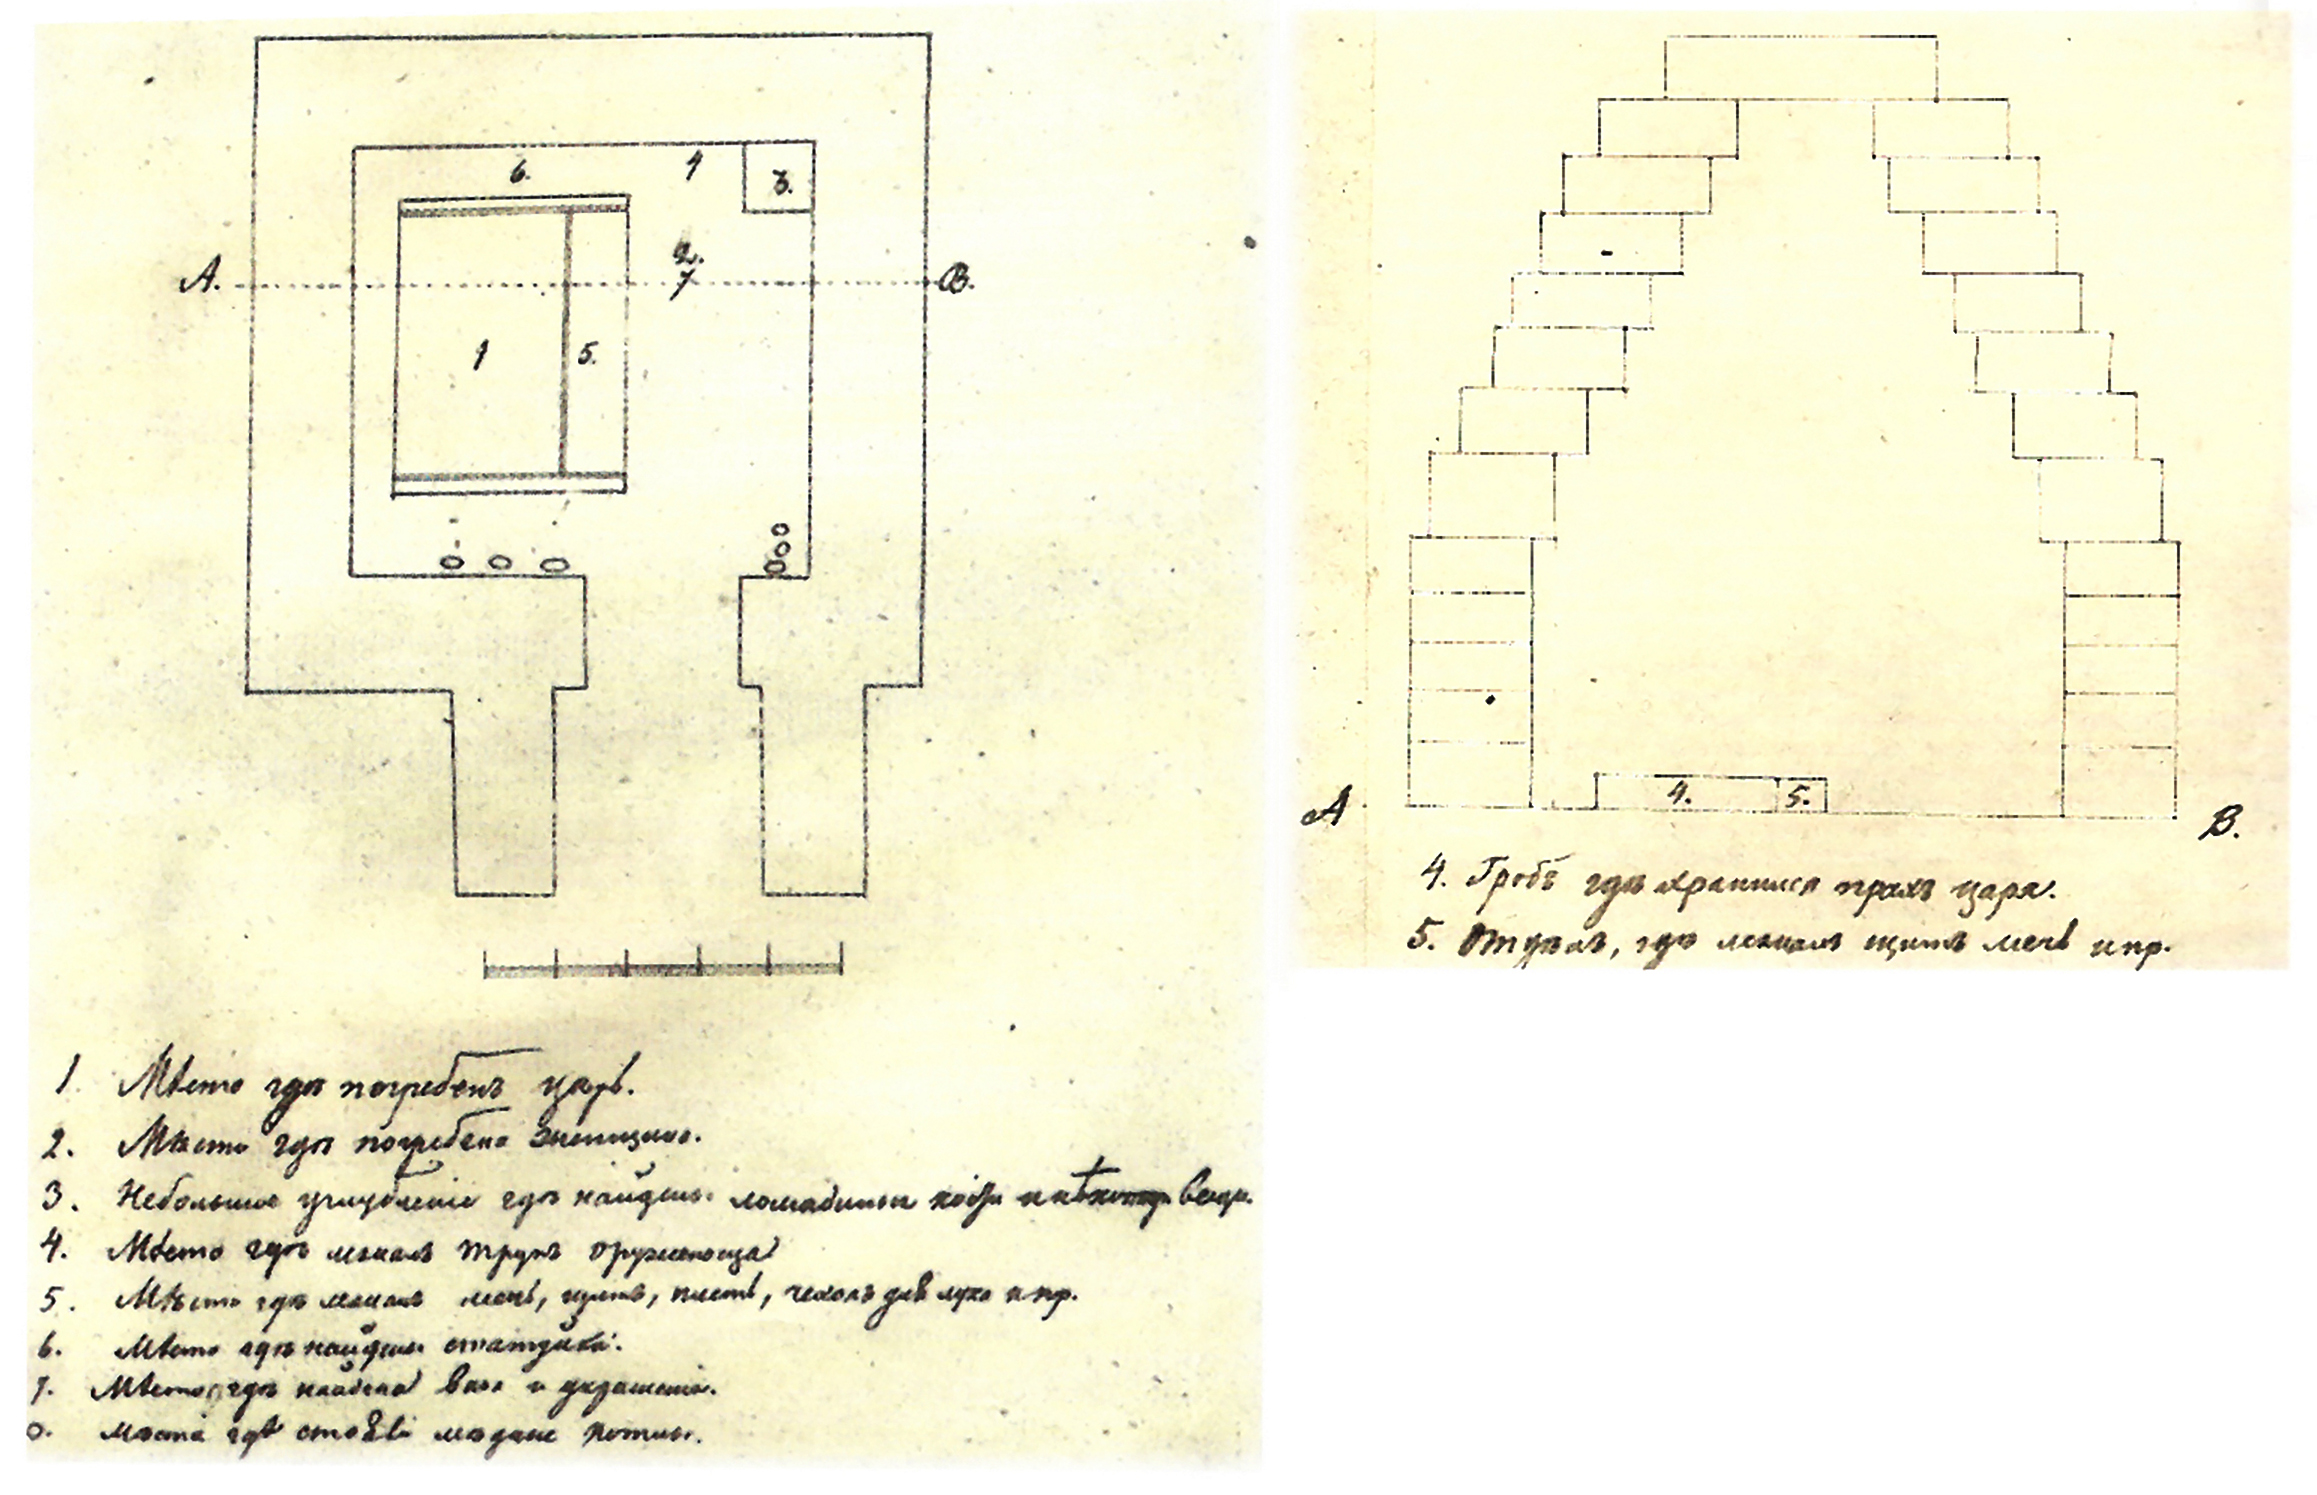 6.
4
3.
2.
7
А.
В.
1
5.
1. Мѣсто гдѣ погребенъ царь.
2. Мѣсто гдѣ погребена женщина.
3. Небольшое углубленіе гдѣ найдены лошадиныя кости и нѣкотор вещи.
4. Мѣсто гдѣ лежалъ трупъ оруженосца
5. Мѣсто гдѣ лежалъ мечь, щитъ, плеть, чехолъ для лука и пр.
6. Мѣсто гдѣ найдены статуйки.
7. Мѣсто, гдѣ найдена ваза и украшенія.
о. мѣста гдѣ стояли мѣдные котлы.
4.
5.
А
В.
4. Гробъ гдѣ хранился прахъ царя.
5. Отдѣлъ, гдѣ лежалъ щитъ мечь и пр.